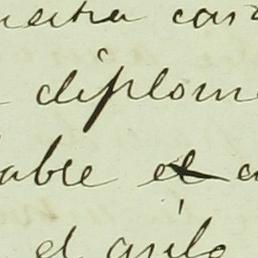 nuestra cart
diplom
able el a
el asilo